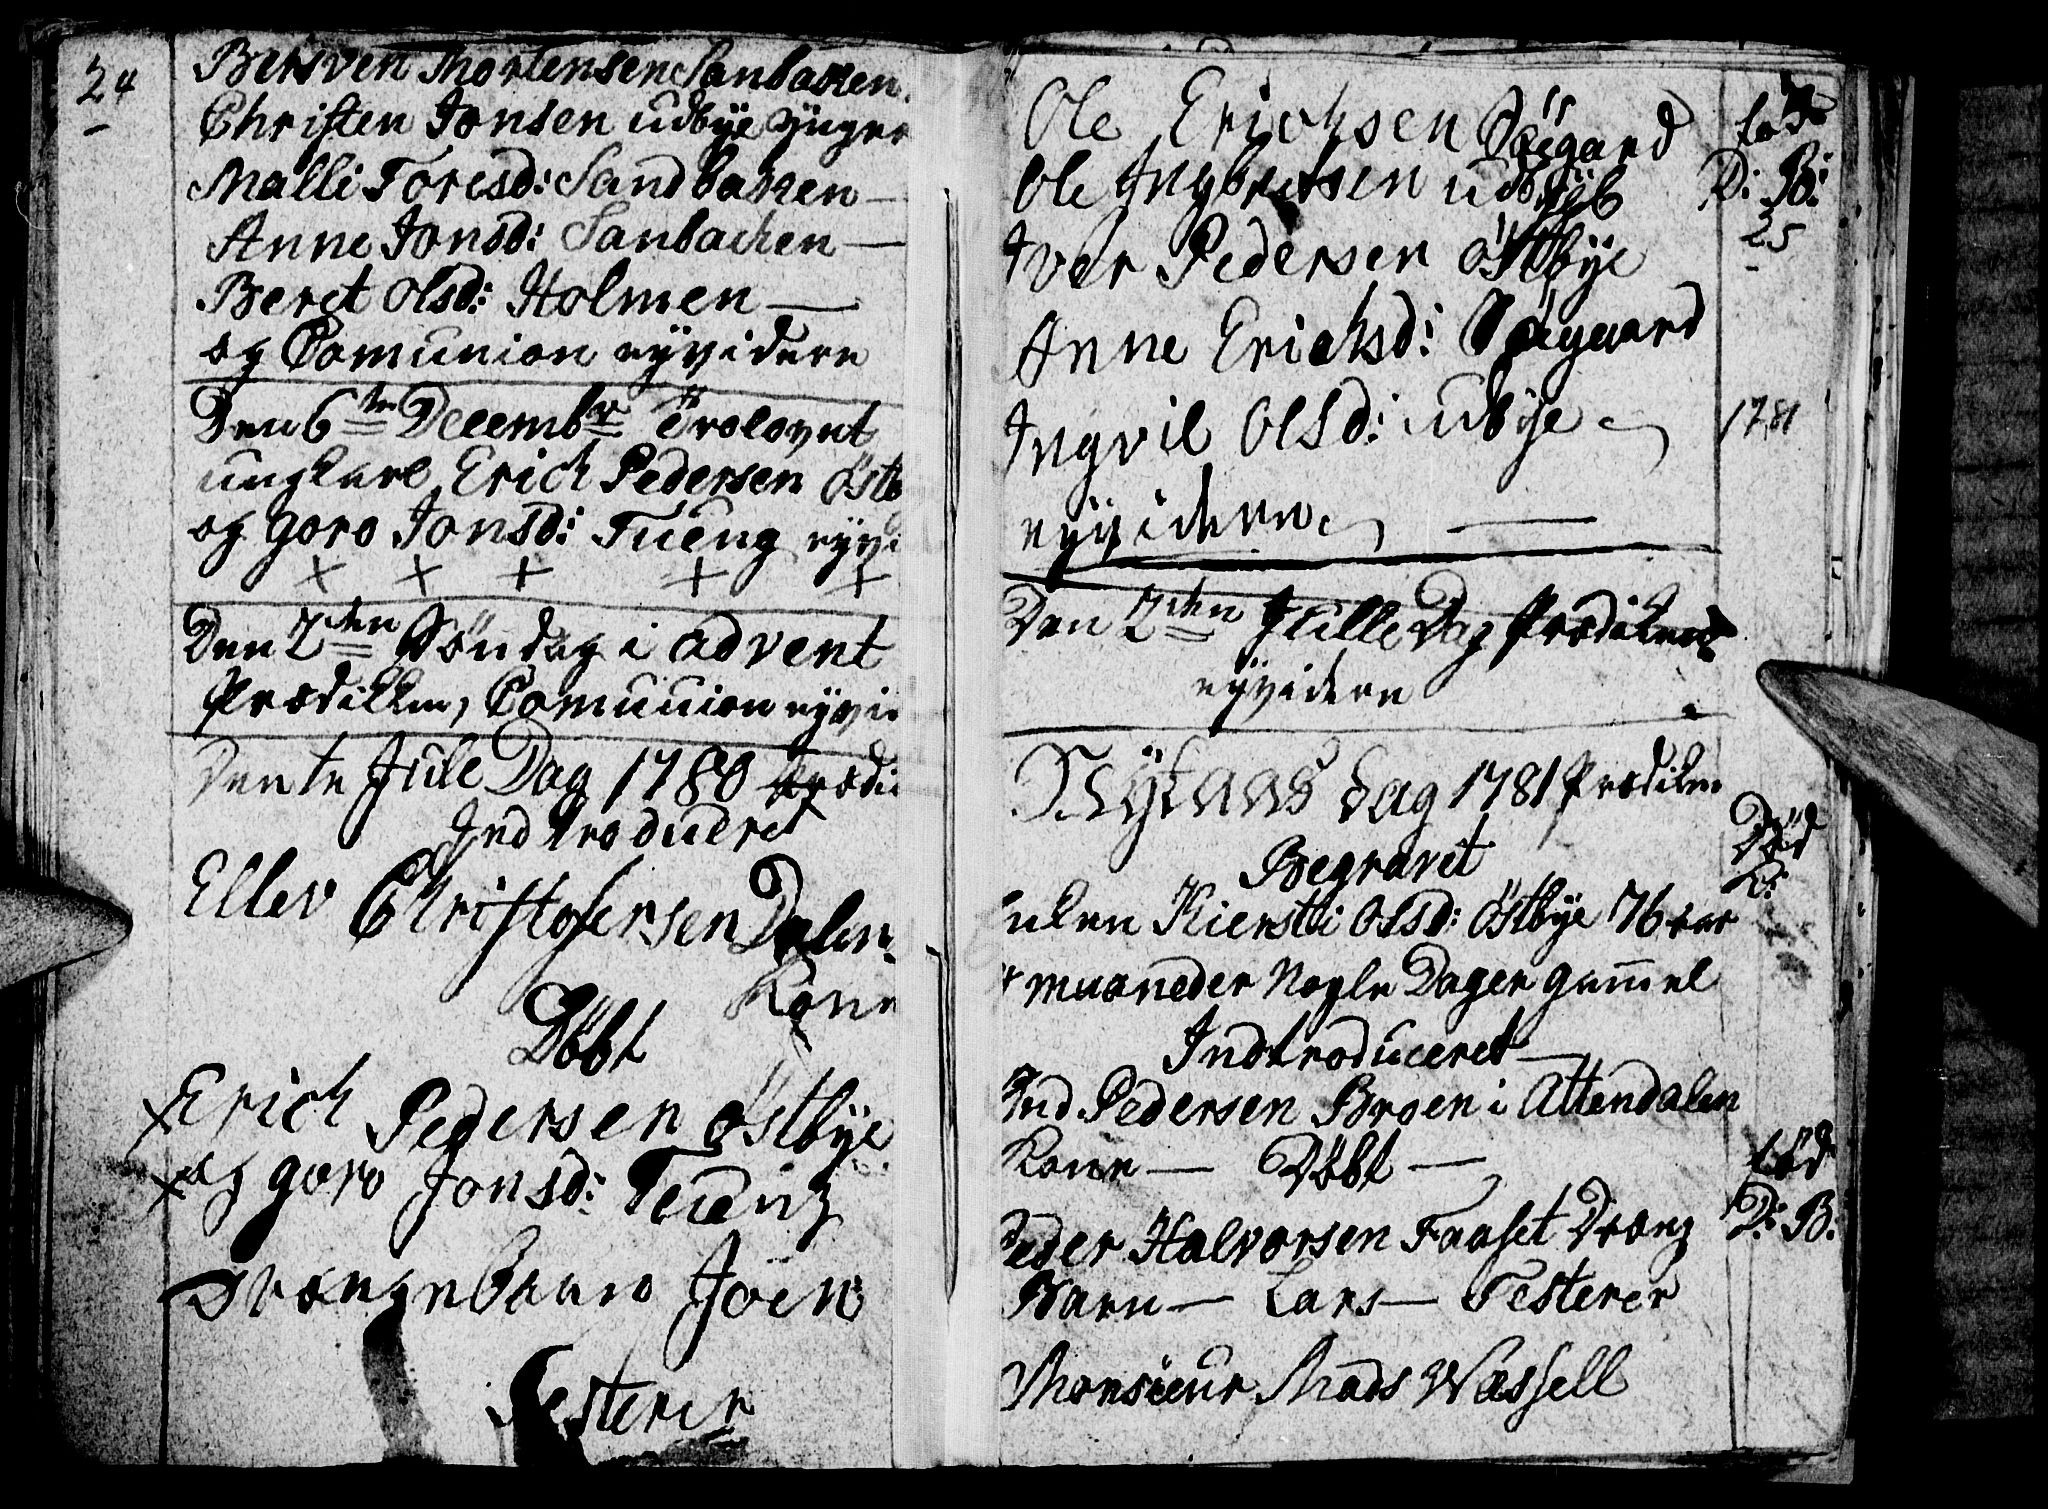 24
Bersven Mortensen Sanbaken
Christen Jonsen udbÿe ÿnger
Malli Toresd: Sandbaken —
Anne Jonsd: Sanbachen —
Beret Olsd: Holmen —
og Comunion eÿvidere
Den 6te Decembr Trolovet
ungkarl Erich Pedersen Östb
og goro Jonsd: Tueng eÿvi
Den 2den Söndag i advent
Prædikken, Comunion eÿvi
Den 1te Jule Dag 1780 Prædi
Indtroduceret
Ellev Christofersen Dalen
Kone
Döbt
Erich Pedersen östbÿe
og goro Jonsd: Tueng
Drængebarn Joen
Testerer
Ole Erichsen Öigard
Ole Ingbretsen udbÿe
Iver Pedersen östbÿe
Anne Ericksd: Öigaard
Ingvil Olsd: udbÿe
eÿvidere
Den 2den Julle Dag Prædiken
eÿvidere
Nÿtaars dag 1781 Prædiken
Begravet
Kiersti Olsd: östbÿe 76 aar
maaneder Nogle Dager gammel
Indtroduceret —
Pedersen Broen i Attendalen
Kone — Döbt —
Peder Halvorsen Faaset Dræng
Barn — Lars — Testerer
Monsieur Mads Wessell
D: B:
25
1781
Död
D:
föd
D: B: